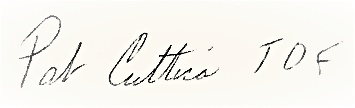 Pat Cuttica TDF